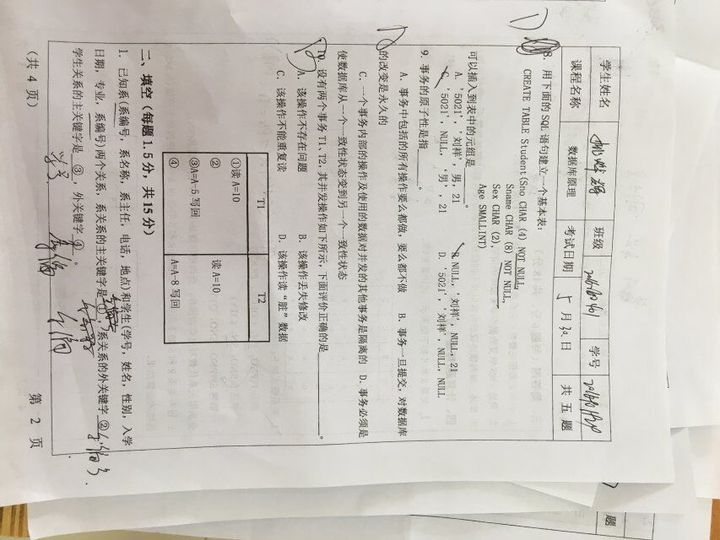 学生姓名 班级 学号
课程名称 数据库原理 考试日期 5 月 30 日 共 五 题
D 8. 用下面的 SQL 语句建立一个基本表:
CREATE TABLE Student(Sno CHAR (4) NOT NULL,
Sname CHAR (8) NOT NULL,
Sex CHAR (2),
Age SMALLINT)
可以插入到表中的元组是____。
A. '5021', '刘祥', 男, 21 B. NULL, '刘祥', NULL, 21
C. '5021', NULL, '男', 21 D. '5021', '刘祥', NULL, NULL
9. 事务的原子性是指____。
A. 事务中包括的所有操作要么都做, 要么都不做 B. 事务一旦提交, 对数据库
的改变是永久的
C. 一个事务内部的操作及使用的数据对并发的其他事务是隔离的 D. 事务必须是
使数据库从一个一致性状态变到另一个一致性状态
10. 设有两个事务 T1, T2, 其并发操作如下所示, 下面评价正确的是____。
A. 该操作不存在问题 B. 该操作丢失修改
C. 该操作不能重复读 D. 该操作读“脏”数据
T1 T2
①读 A=10
② 读 A=10
③A=A-5 写回
④ A=A-8 写回
二、填空 (每题 1.5 分, 共 15 分)
1. 已知系(系编号, 系名称, 系主任, 电话, 地点)和学生(学号, 姓名, 性别, 入学
日期, 专业, 系编号)两个关系, 系关系的主关键字是 ① , 系关系的外关键字 ② ,
学生关系的主关键字是 ③ , 外关键字 ④ .
学号
(共 4 页) 第 2 页
题